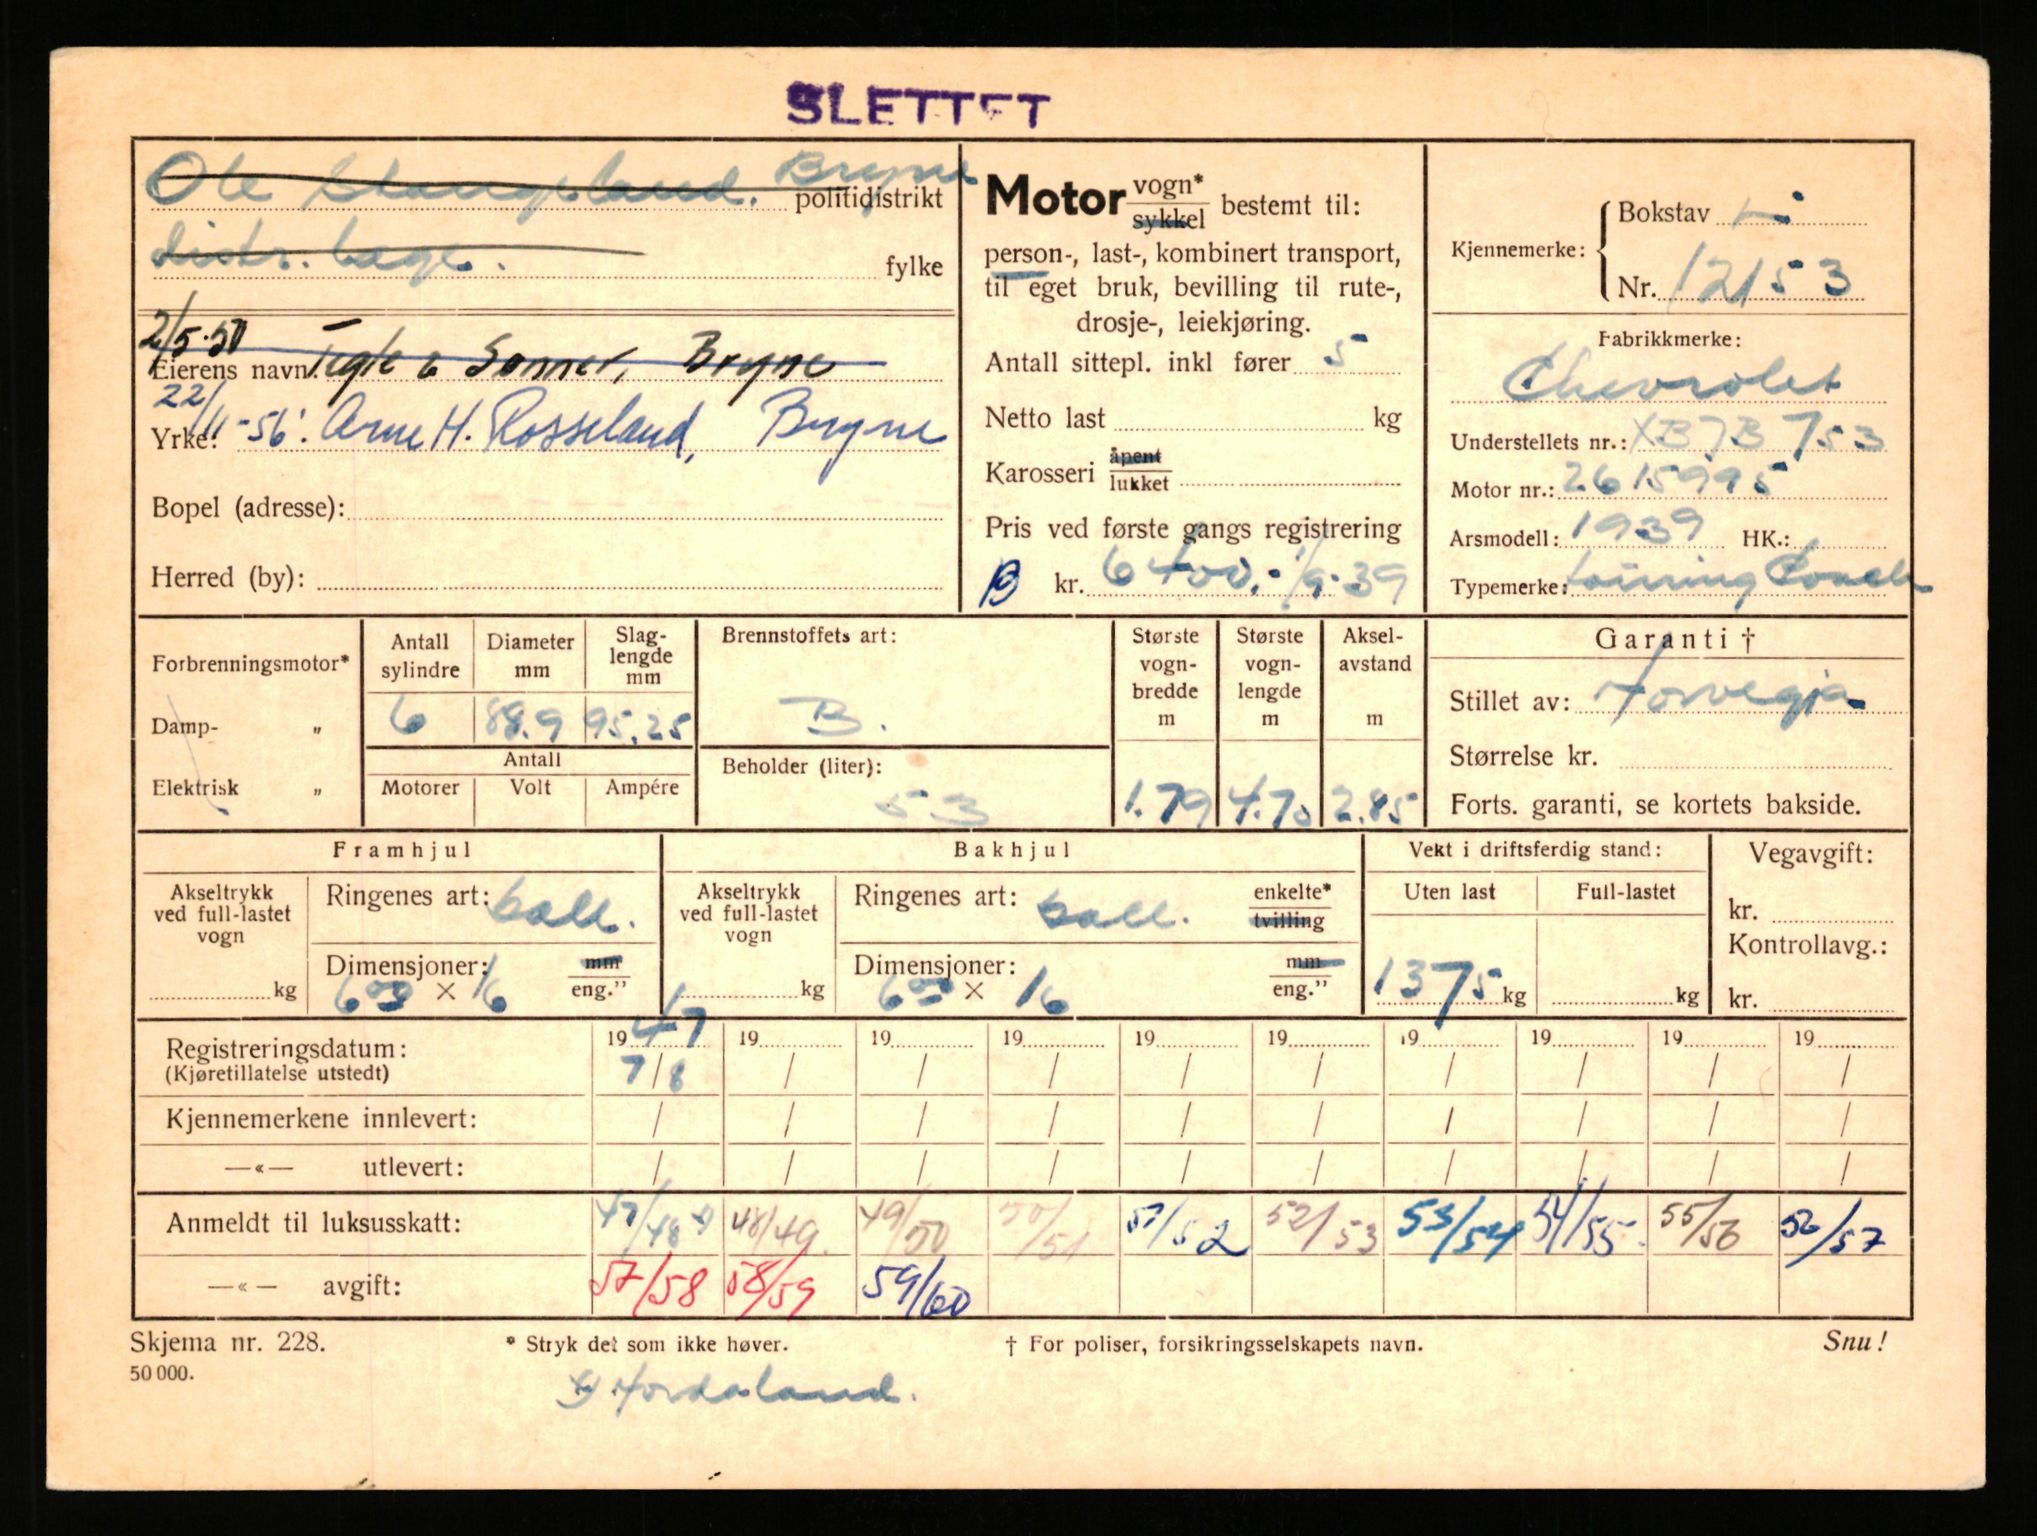 SLETTET
Ole Stangeland. Bryne
politidistrikt
distr. lage.
fylke
2/5.50 Tegle & Sønner, Bryne
Eierens navn:
22/11-56. Arne H. Rosseland, Bryne
Yrke:
Bopel (adresse):
Herred (by):
Motor vogn* / sykkel bestemt til:
person-, last-, kombinert transport,
til eget bruk, bevilling til rute-,
drosje-, leiekjøring.
Antall sittepl. inkl fører 5
Netto last kg
Karosseri åpent / lukket
Pris ved første gangs registrering
B kr. 6400.- 1/9-39
Kjennemerke: Bokstav L
Nr. 12153
Fabrikkmerke:
Chevrolet
Understellets nr.: XB7B753
Motor nr.: 2615995
Arsmodell: 1939 HK.:
Typemerke: touring Coach
Forbrenningsmotor*
Damp- „
Elektrisk „
Antall sylindre 6
Diameter mm 88.9
Slag-lengde mm 95.25
Antall
Motorer Volt Ampére
Brennstoffets art:
B.
Beholder (liter):
53
Største vogn-bredde m 1.79
Største vogn-lengde m 4.70
Aksel-avstand m 2.85
Garanti †
Stillet av: Norvegia
Størrelse kr.
Forts. garanti, se kortets bakside.
Framhjul
Akseltrykk ved full-lastet vogn kg
Ringenes art: ball.
Dimensjoner: mm / eng."
6.00 × 16
Bakhjul
Akseltrykk ved full-lastet vogn kg
Ringenes art: ball. enkelte* / tvilling
Dimensjoner: mm / eng."
6.00 × 16
Vekt i driftsferdig stand:
Uten last Full-lastet
1375 kg kg
Vegavgift:
kr.
Kontrollavg.:
kr.
Registreringsdatum: 1947 19 19 19 19 19 19 19 19 19
(Kjøretillatelse utstedt) 7/8 / / / / / / / / /
Kjennemerkene innlevert: / / / / / / / / / /
—«— utlevert: / / / / / / / / / /
Anmeldt til luksusskatt: 47/48 x) 48/49. 49/50 50/51 51/52 52/53 53/54 54/55 55/56 56/57
—«— avgift: 57/58 58/59 59/60
Skjema nr. 228. * Stryk det som ikke høver. † For poliser, forsikringsselskapets navn. Snu!
50 000.
x) Hordaland.